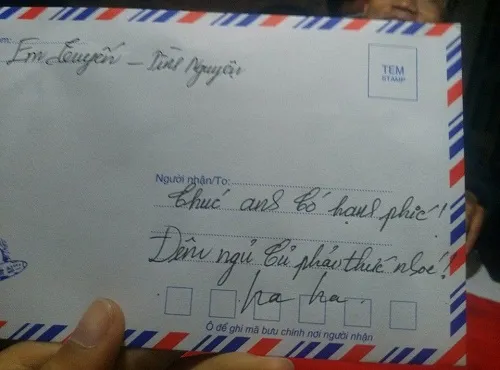 Em Tuyến – Tình Nguyện
TEM
STAMP
Người nhận/To:
Chúc anh Có hạnh phúc!
Đêm ngủ Cứ phải thức nhoé!!
ha ha
Ô để ghi mã bưu chính nơi người nhận